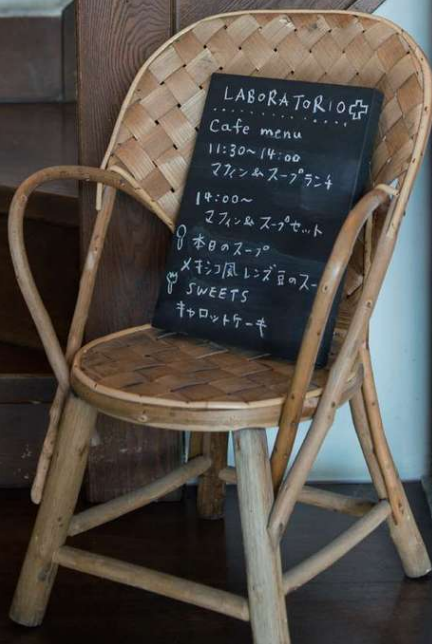 LABORATORIO
Cafe menu
11:30～14:00
マフィン&スープランチ
14:00～
マフィン&スープセット
本日のスープ
メキシコ風 レンズ豆のスー
SWEETS
キャロットケーキ